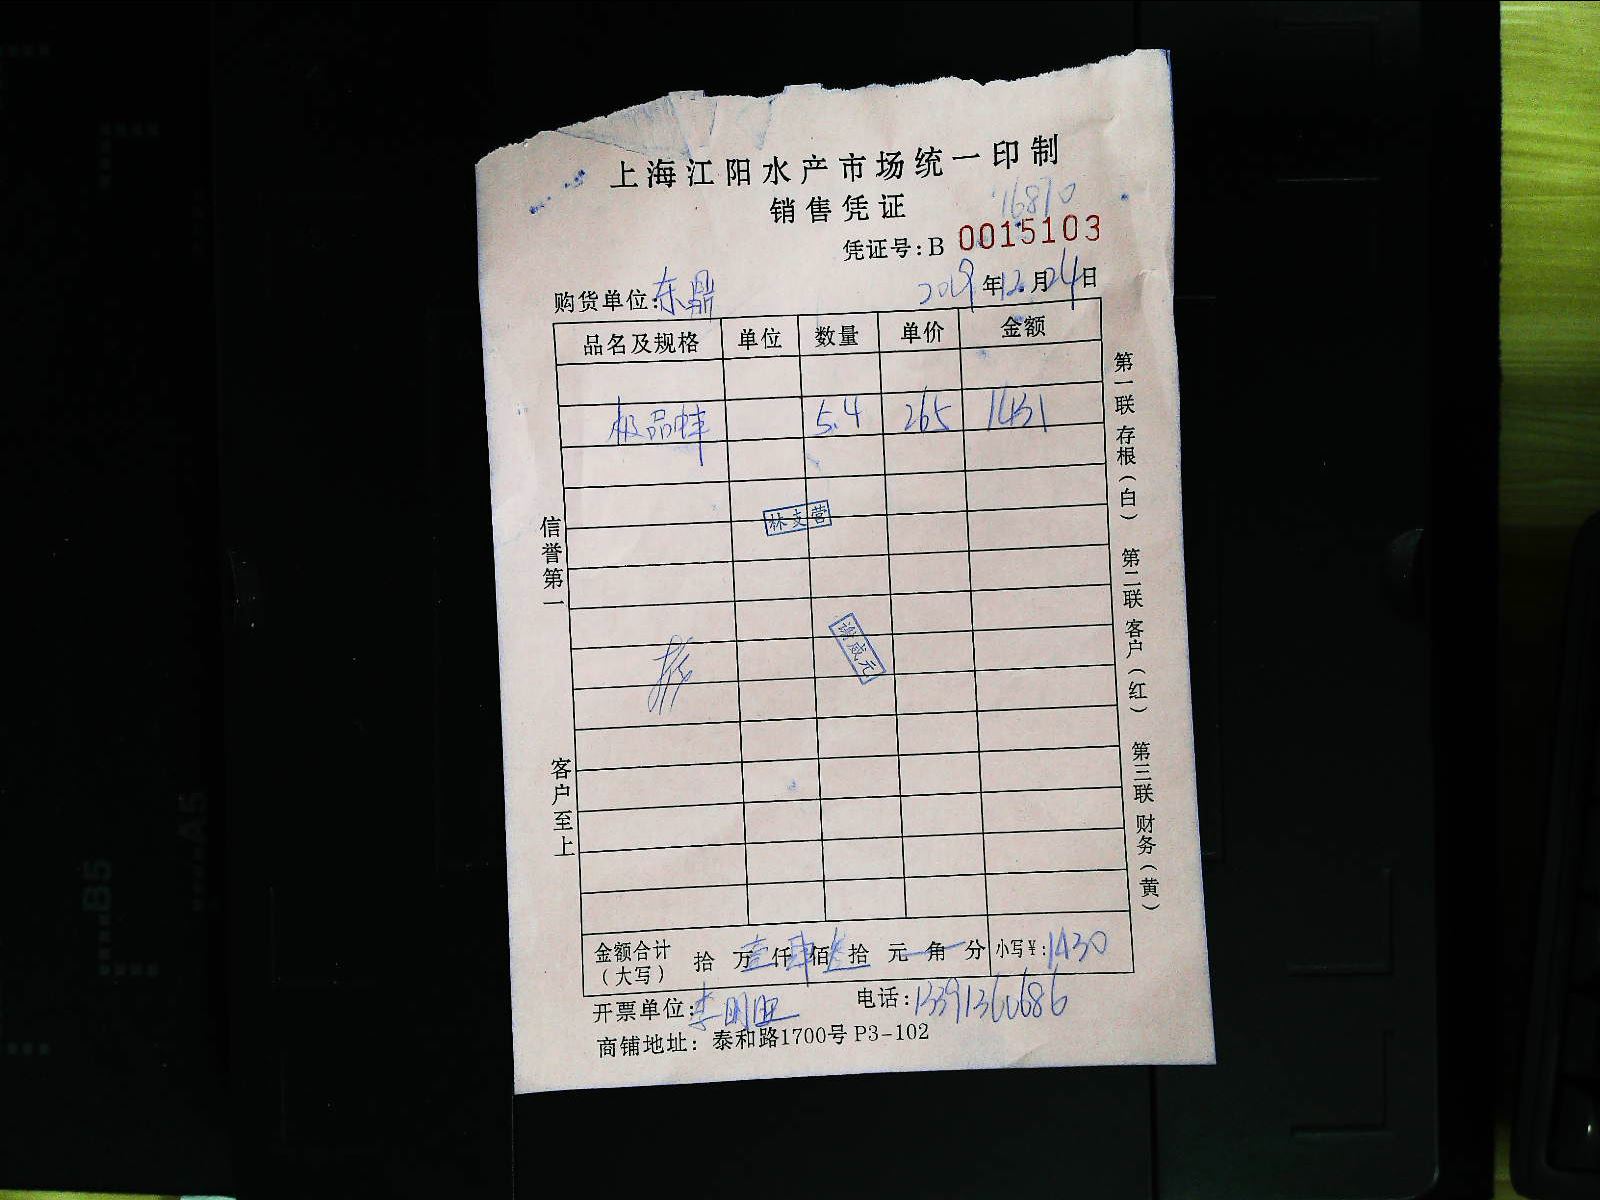 上海江阳水产市场统一印制
销售凭证
16810
凭证号:B 0015103
购货单位:东鼎 2019年12月24日
品名及规格 单位 数量 单价 金额
极品蚌 5.4 265 1431
林支营
谢咸元
信誉第一
客户至上
第一联存根(白) 第二联客户(红) 第三联财务(黄)
金额合计(大写) 拾 万壹仟肆佰叁拾 元 角 分 小写¥:1430
开票单位:李明旺 电话:13391360686
商铺地址: 泰和路1700号 P3-102